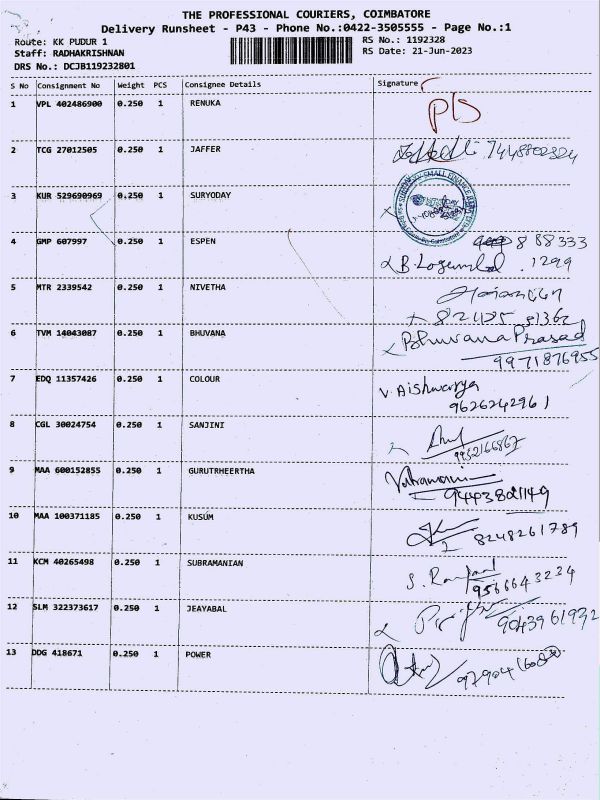 THE PROFESSIONAL COURIERS, COIMBATORE
Delivery Runsheet - P43 - Phone No.:0422-3505555 - Page No.:1
Route: KK PUDUR 1
RS No.: 1192328
Staff: RADHAKRISHNAN
RS Date: 21-Jun-2023
DRS No.: DCJB119232801
S No Consignment No Weight PCS Consignee Details Signature
1 VPL 402486900 0.250 1 RENUKA
2 TCG 27012505 0.250 1 JAFFER 7448802324
3 KUR 529690969 0.250 1 SURYODAY
4 GMP 607997 0.250 1 ESPEN 888333
1299
5 MTR 2339542 0.250 1 NIVETHA
6 TVM 14043087 0.250 1 BHUVANA Bhuvana Prasad
9971876955
7 EDQ 11357426 0.250 1 COLOUR V. Aishwarya
9626242961
8 CGL 30024754 0.250 1 SANJINI
9952166867
9 MAA 600152855 0.250 1 GURUTRHEERTHA
10 MAA 100371185 0.250 1 KUSUM 8248261789
11 KCM 40265498 0.250 1 SUBRAMANIAN
9566643234
12 SLM 322373617 0.250 1 JEAYABAL
9043961932
13 DDG 418671 0.250 1 POWER